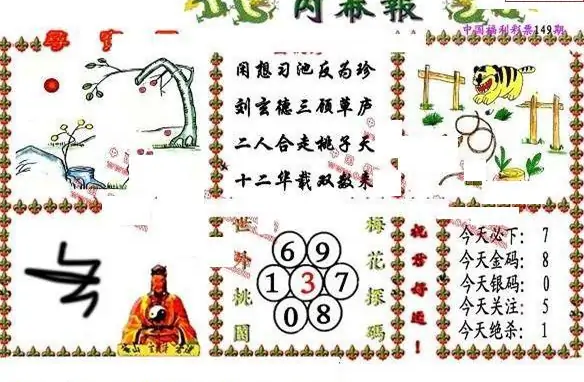 內幕報
中国福利彩票149期
闲想习池反为珍
刘玄德三顾草庐
二人合走桃子天
十二华载双数来
世外桃園
6 9
1 3 7
0 8
梅花探碼
祝君好运！
今天必下：7
今天金码：8
今天银码：0
今天关注：5
今天绝杀：1